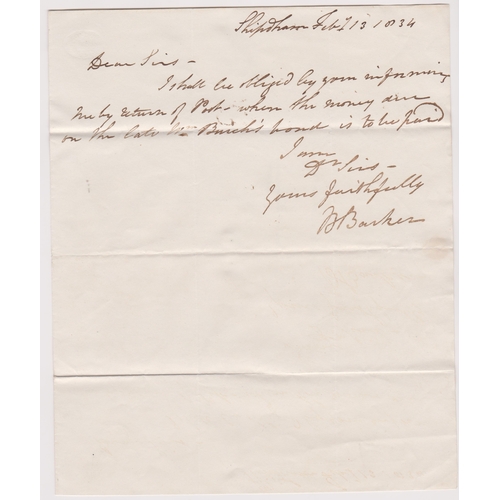 Shipdham Feby 13 1834
Dear Sirs -
I shall be obliged by your informing
me by return of Post - when the money due
on the late Mr Burch's bond is to be paid
I am
Dr Sirs -
Yours faithfully
B Barker